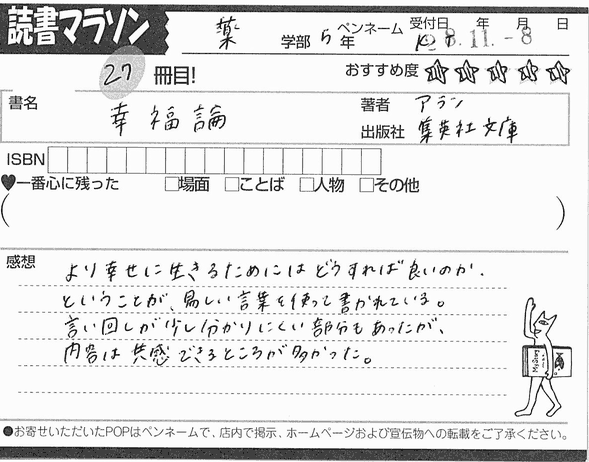 読書マラソン
薬 学部 5年 ペンネーム K.T 受付日 年 月 日
8.11.-8
27 冊目! おすすめ度 ☆☆☆☆☆
書名 幸福論 著者 アラン
出版社 集英社文庫
ISBN
♥一番心に残った □場面 □ことば □人物 □その他
( )
感想
より幸せに生きるためにはどうすれば良いのか、
ということが、易しい言葉を使って書かれている。
言い回しが少し分かりにくい部分もあったが、
内容は共感できるところが多かった。
●お寄せいただいたPOPはペンネームで、店内で掲示、ホームページおよび宣伝物への転載をご了承ください。